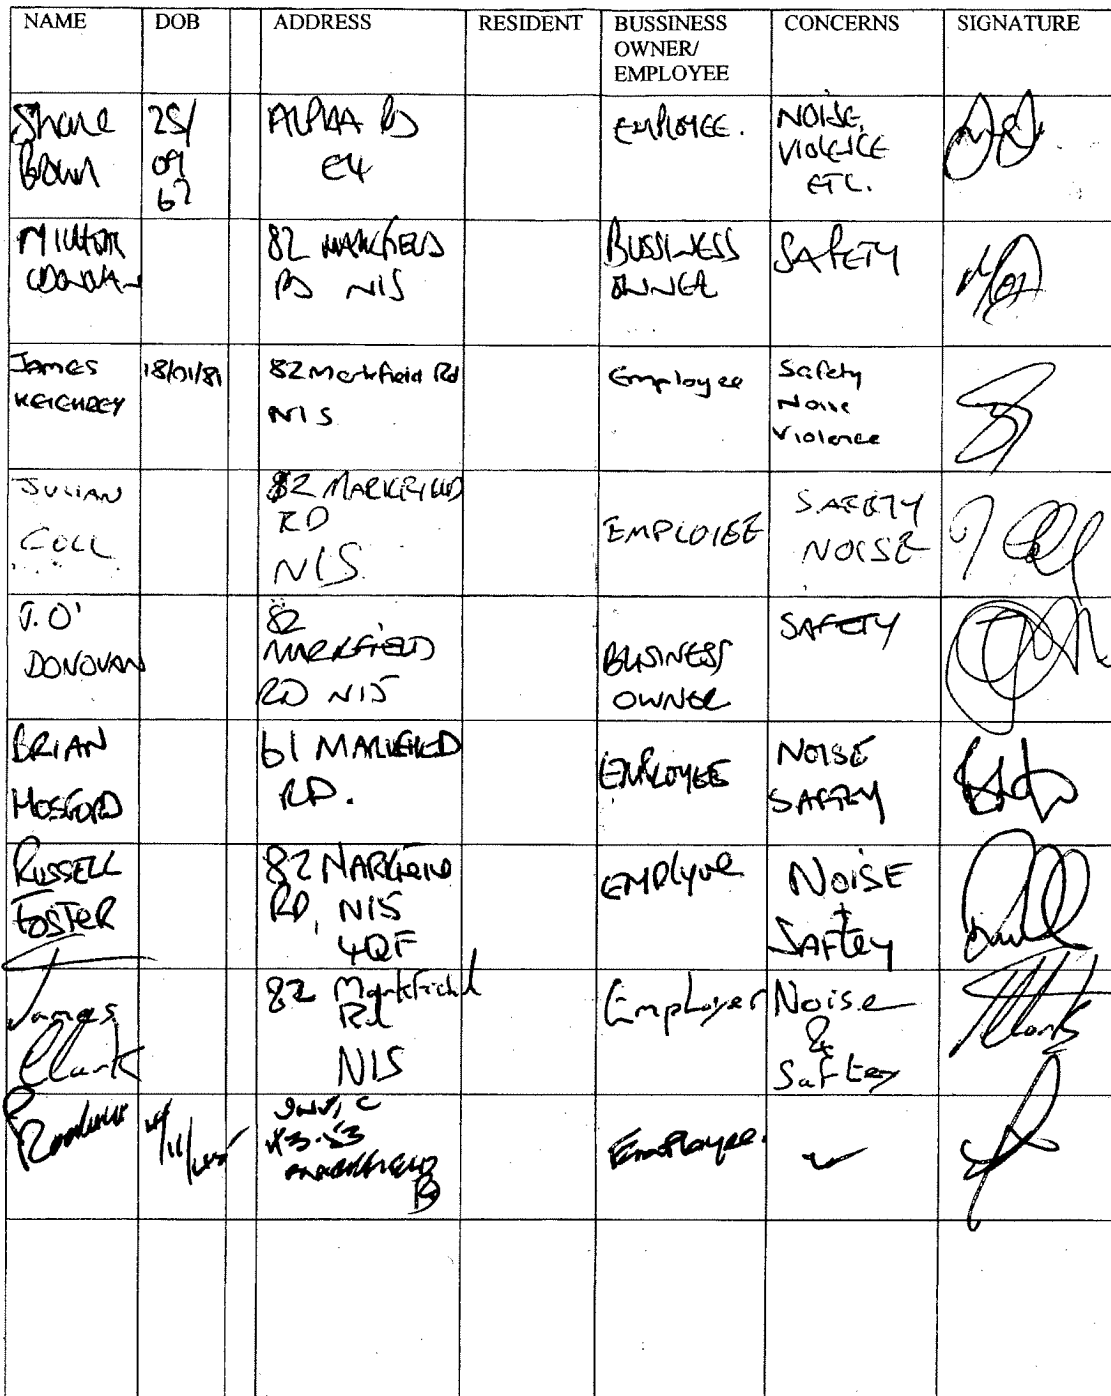 NAME
DOB
ADDRESS
RESIDENT
BUSSINESS
OWNER/
EMPLOYEE
CONCERNS
SIGNATURE
Shane
Brown
25/
09
67
ALPHA RD
E4
EMPLOYEE.
NOISE,
VIOLENCE
ETC.
82 MARKFIELD
RD N15
BUSSINESS
OWNER
SAFETY
James
18/01/81
82 Markfield Rd
N15
Employee
Safety
Noise
Violence
JULIAN
COLL
82 MARKFIELD
RD
N15
EMPLOIEE
SAFETY
NOISE
J. O'
DONOVAN
82
MARKFIELD
RD N15
BUSINESS
OWNER
SAFETY
BRIAN
HOSFORD
61 MARKFIELD
RD.
EMPLOYEE
NOISE
SAFTEY
RUSSELL
FOSTER
82 MARKFIELD
RD, N15
4QF
EMPLYUE
NOISE
+
SAFTEY
James
Clark
82 Markfield
Rd
N15
Employer
Noise
&
Saftey
MARKFIELD
RD
Employee.